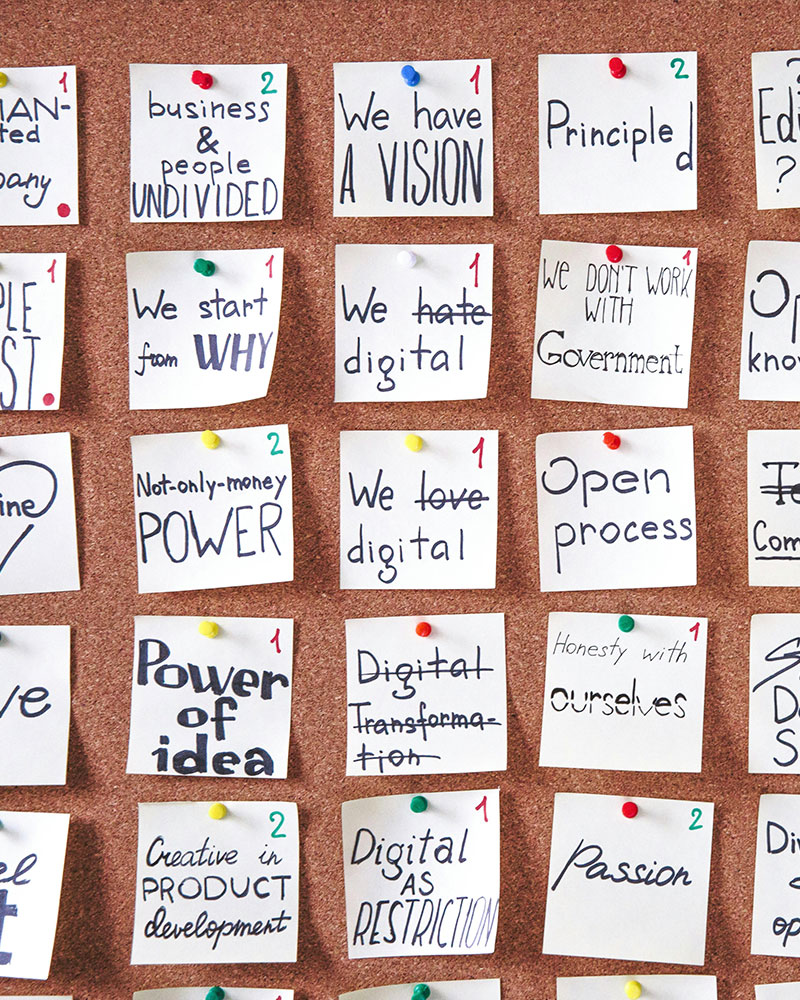 1
ted
2
business
&
people
UNDIVIDED
1
We have
A VISION
2
Principled
?
1
1
We start
from WHY
1
We hate
digital
1
WE DON'T WORK
WITH
Government
2
Not-only-money
POWER
1
We love
digital
Open
process
1
Power
of
idea
Digital
Transforma-
tion
1
Honesty with
ourselves
2
Creative in
PRODUCT
development
1
Digital
AS
RESTRICTION
2
Passion